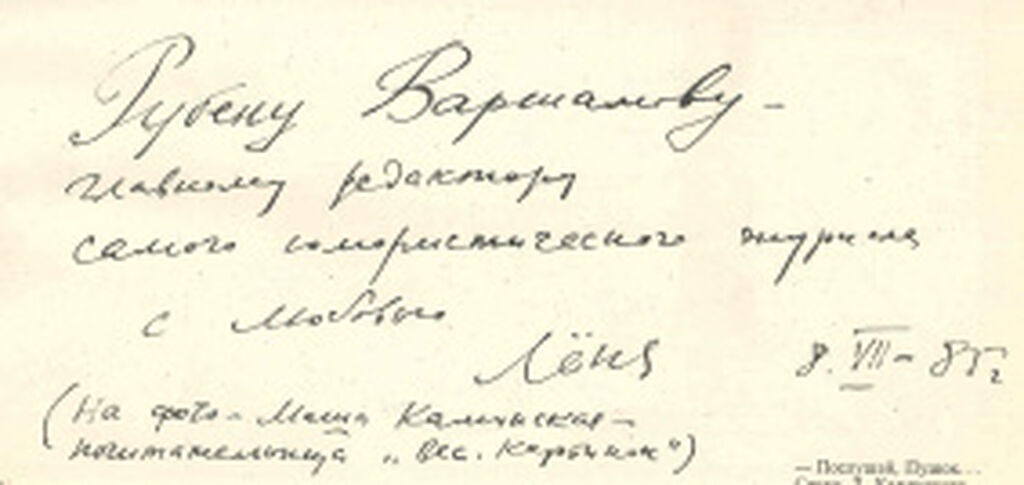 Рубену Варшамову –
главному редактору
самого юмористического журнала
с любовью
Лёня
8. VII – 85 г
(На фото – Маша Каминская –
почитательница „Вес. Картинок“)
— Послушай, Пушок...